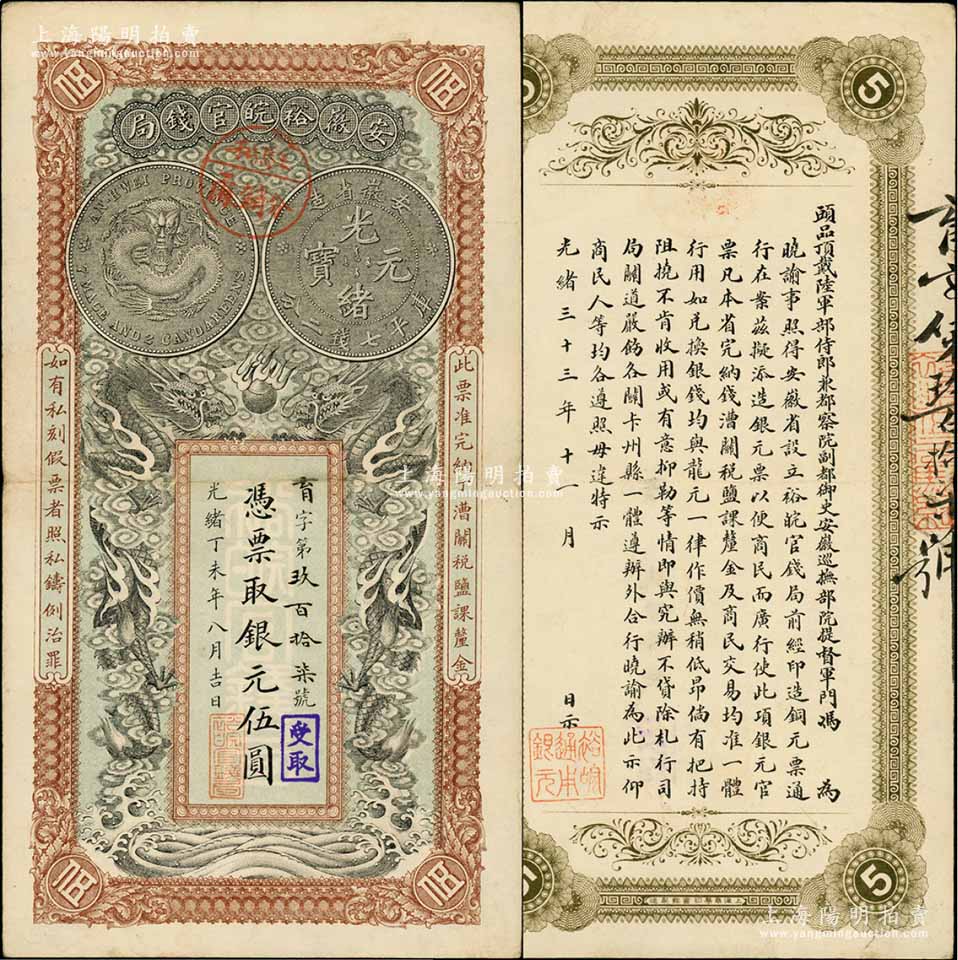 上海陽明拍賣
www.yangmingauction.com
伍
伍
安徽裕皖官錢局
AN HWEI PROVINCE
7 MACE AND 2 CANDAREENS
安徽省造
光緒元寶
庫平七錢二分
此票准完納錢漕關税鹽課釐金
如有私刻假票者照私鑄例治罪
育字第玖百拾柒號
憑票取銀元伍圓
光緒丁未年八月吉日
受取
伍
伍
5
頭品頂戴陸軍部侍郎兼都察院副都御史安徽巡撫部院提督軍門馮 為
曉諭事照得安徽省設立裕皖官錢局前經印造銅元票通
行在案茲擬添造銀元票以便商民而廣行使此項銀元官
票凡本省完納錢漕關税鹽課釐金及商民交易均准一體
行用如兑換銀錢均與龍元一律作價無稍低昂倘有把持
阻撓不肯收用或有意抑勒等情即與究辦不貸除札行司
局關道嚴飭各關卡州縣一體遵辦外合行曉諭為此示仰
商民人等均各遵照毋違特示
光緒三十三年十一月 日示
裕皖通本銀元
5
5
上海陽明拍賣
www.yangmingauction.com
上海陽明拍賣
www.yangmingauction.com